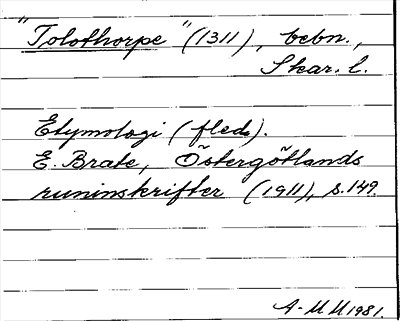 "Tolothorpe" (1311), bebn.,
Skar. l.
Etymologi (fled.).
E. Brate, Östergötlands
runinskrifter (1911), s. 149.
A-MU 1981.